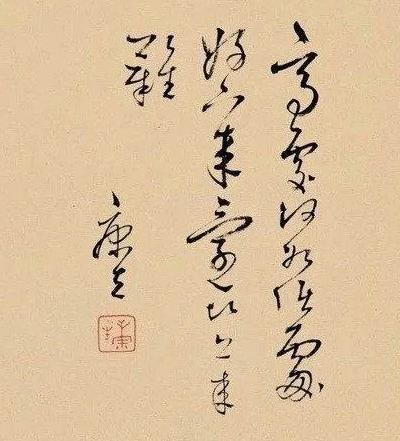 高處何如低處
好下來還比上來
難
康生